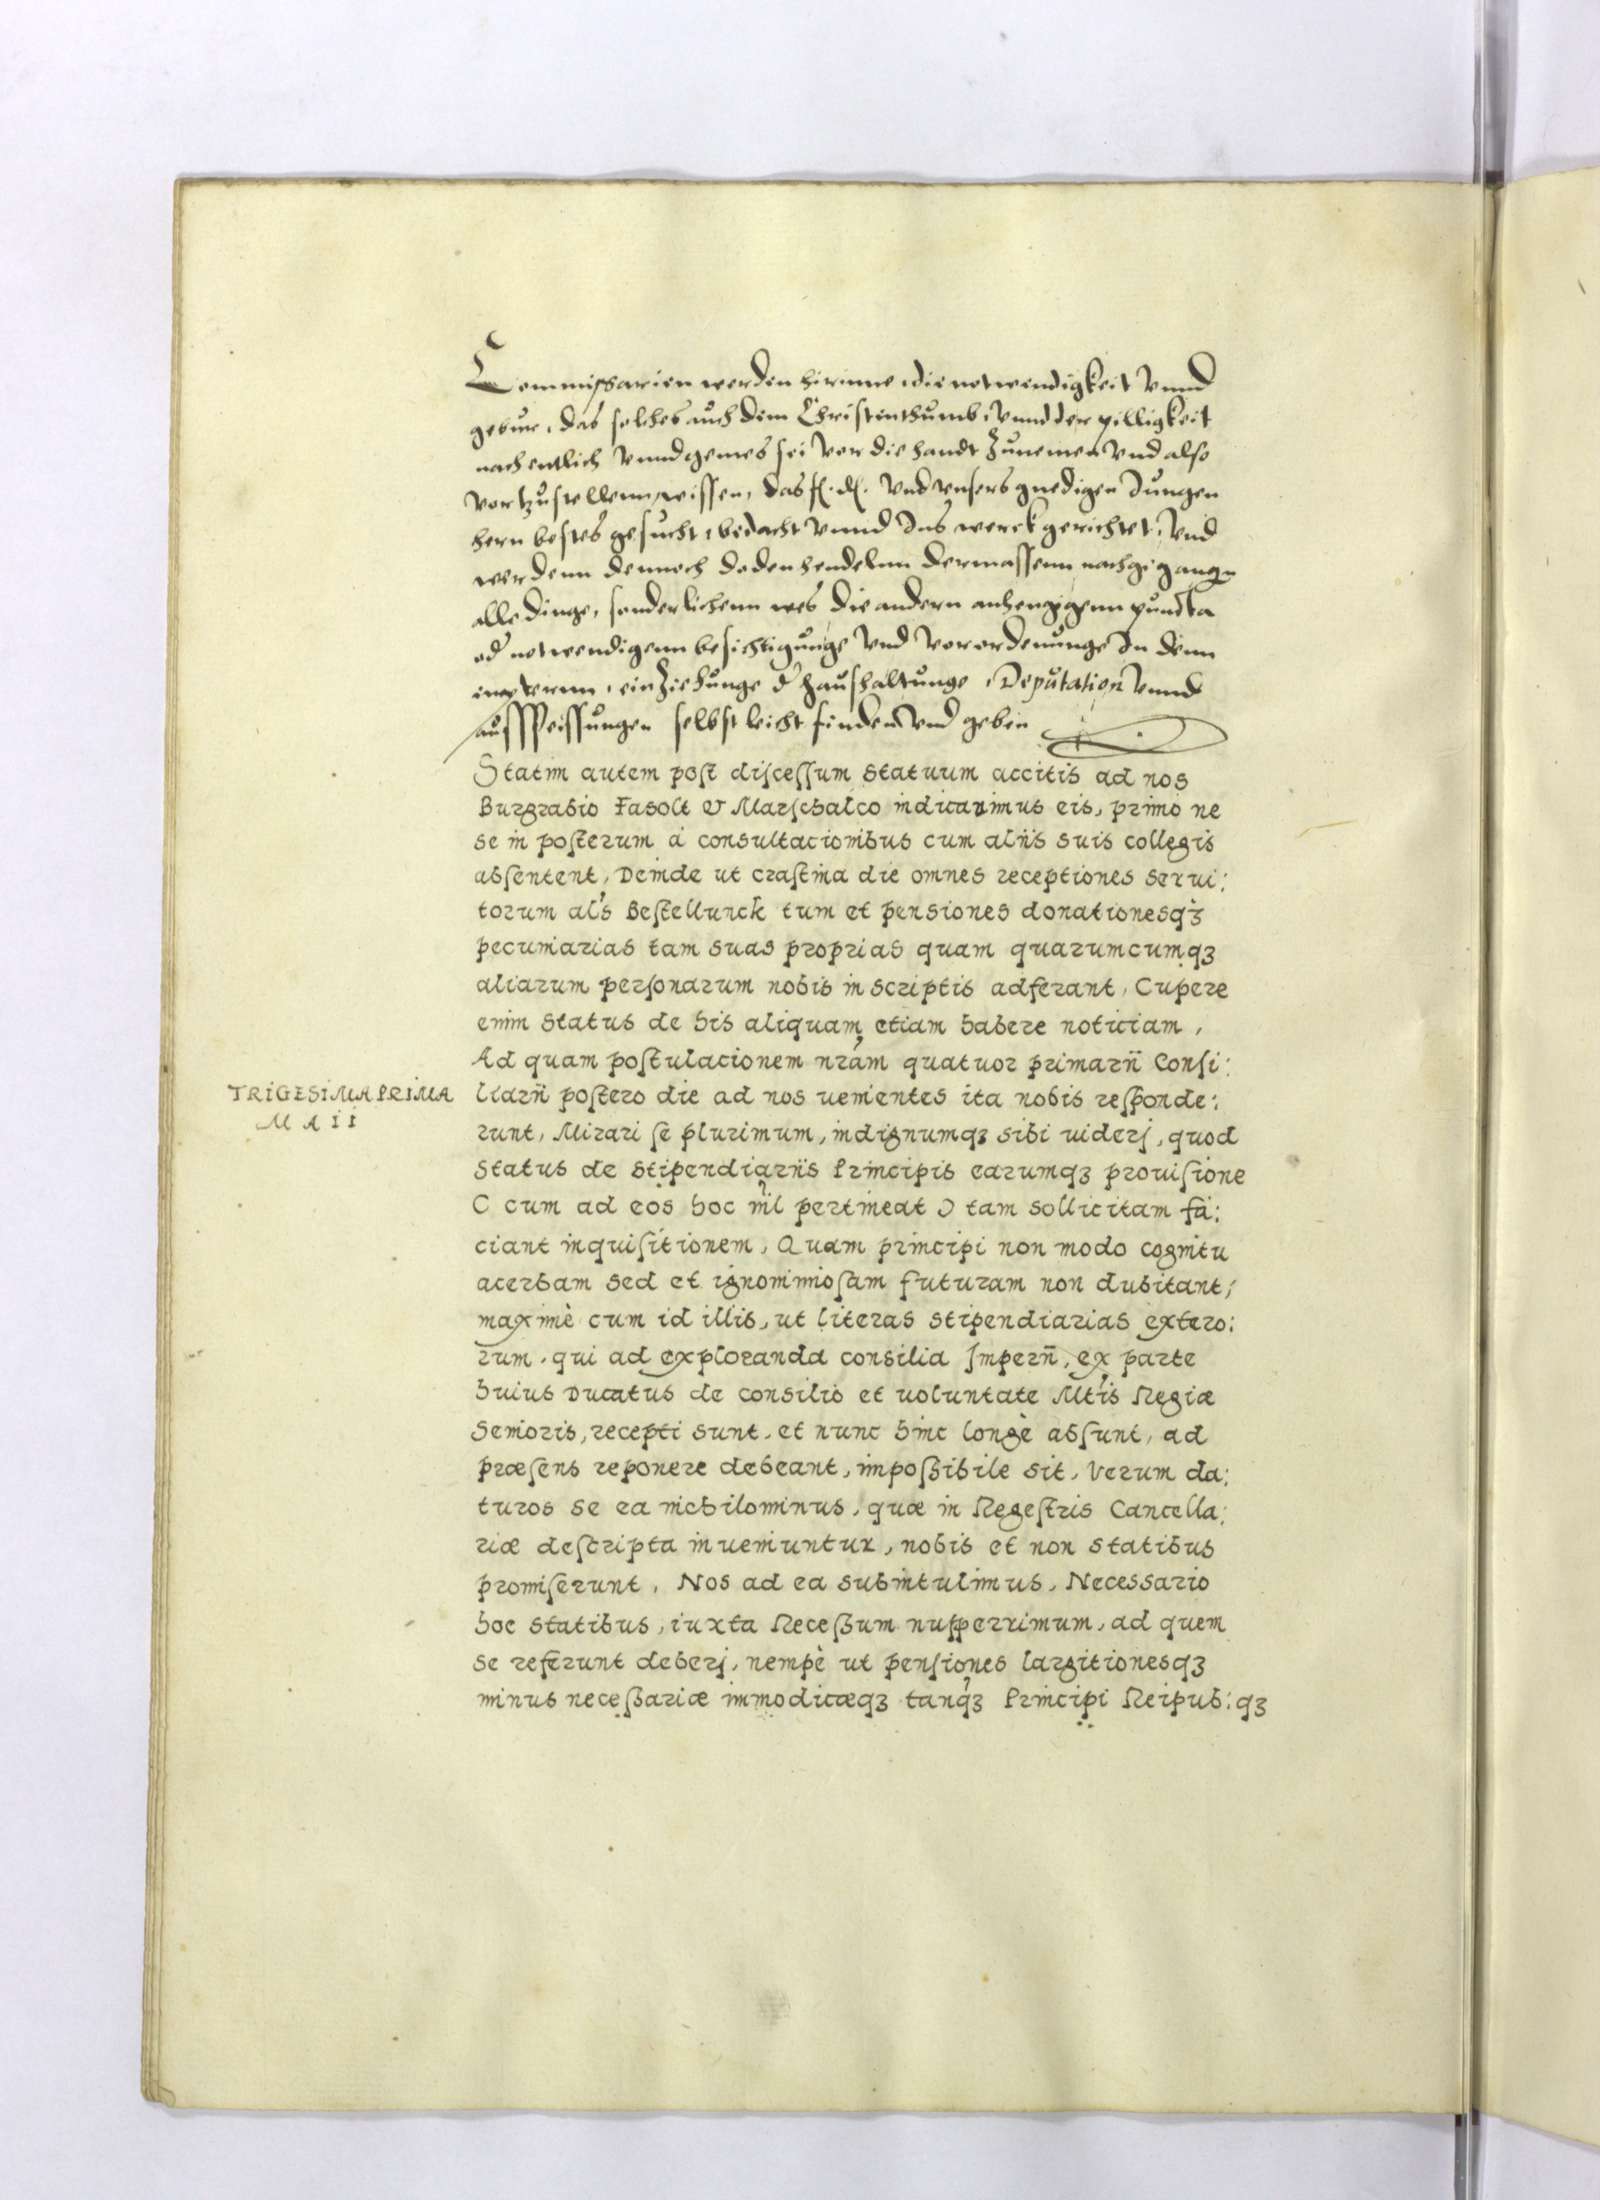 Commissarien werden hirinne, die notwendigkeit vnnd
gebur, das solches auch dem Christenthumb, vnnd der pilligkeit
nachentlich vnnd gemes sei vor die handt zunemen vnd also
vortzustellenn wissen, das f. d. vnd vnsers gnedigen Jungen
hern bestes gesucht, bedacht vnnd Ins werck gerichtet, vnd
werdenn dennoch doden hendelnn dermassenn nachgegangen
alle dinge, sonderlichenn wes die andern anhengigenn puncta
od notwendigenn besichtigunge vnd verordenunge In denn
empternn, einziehunge d haushaltunge, Deputation vnnd
ausspeissungen selbst leicht finden vnd geben
Statim autem post discessum statuum accitis ad nos
Burgrabio Fasolt & Marschalco indicauimus eis, primo ne
se in posterum à consultacionibus cum alijs suis collegis
absentent, Deinde ut crastina die omnes receptiones serui:
torum als Bestellunck tum et pensiones donationesqȝ
pecuniarias tam suas proprias quam quarumcumqȝ
aliarum personarum nobis in scriptis adferant, Cupere
enim status de his aliquam etiam habere noticiam,
Ad quam postulacionem nram quatuor primarij Consi:
TRIGESIMA PRIMA
MAII
liarij postero die ad nos uenientes ita nobis responde:
runt, Mirari se plurimum, indignumqȝ sibi uiderj, quod
status de stipendiarijs Principis earumqȝ prouisione
( cum ad eos hoc nil pertineat ) tam sollicitam fa:
ciant inquisitionem, Quam principi non modo cognitu
acerbam sed et ignominiosam futuram non dubitant,
maximè cum id illis, ut literas stipendiarias extero:
rum, qui ad exploranda consilia Imperij, ex parte
huius Ducatus de consilio et uoluntate Mtis Regiæ
Senioris, recepti sunt, et nunc hinc longè absunt, ad
præsens reponere debeant, impossibile sit, Verum da:
turos se ea nichilominus, quæ in Regestris Cancella:
riæ descripta inueniuntur, nobis et non statibus
promiserunt, Nos ad ea subintulimus, Necessario
hoc statibus, iuxta Recessum nuperrimum, ad quem
se referunt deberj, nempè ut pensiones largitionesqȝ
minus necessariæ immodicæqȝ tanqȝ Principi Reipub: qȝ